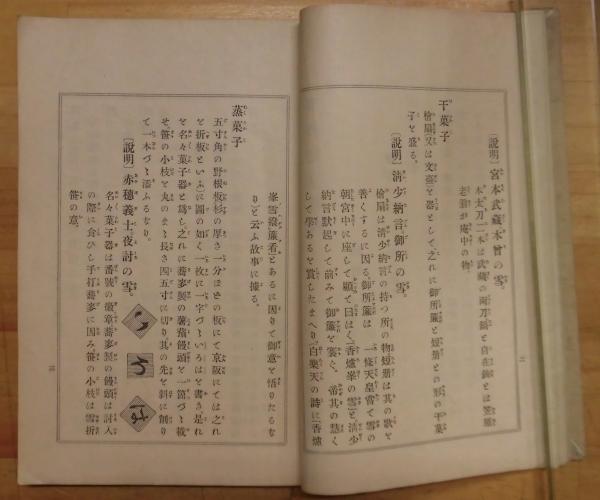 〔説明〕宮本武蔵木曾の雪。
木太刀二本は武蔵の両刀鍋と自在鉤とは笠原
老翁が庵中の物
干菓子
檜扇又は文臺を器として之れに御所簾と短冊との形の干菓
子を盛る。
〔説明〕清少納言御所の雪。
檜扇は清少納言の持つ所の物短册は其の歌を
善くするに因る御所簾は 一條天皇嘗て雪の
朝宮中に座して顧て曰はく「香爐峯の雪」と清少
納言默起して前みて御簾を褰ぐ、帝其の慧く
して學あるを賞したまへり「白樂天の詩に「香爐
峯雪撥簾看」とあるに因りて御意を悟りたるな
り」と云ふ故事に據る。
蒸菓子
五寸角の野根板杉の厚さ一分ほどの板にて京阪にては之れ
を折板といふに圖の如く一枚に一字づゝいろはを書き是れ
を名々菓子器と爲し之れに蕎麥製の薯蕷饅頭を一箇づゝ載
せ笹の小枝を丸のまゝ長さ四五寸に切り其の先を斜に削り
て一本づゝ添ふるなり。
い
ろ
は
〔説明〕赤穂義士夜討の雪。
名々菓子器は番號の徽章蕎麥製の饅頭は討入
の際に食ひし手打蕎麥に因み笹の小枝は雪折
笹の意。
二
三